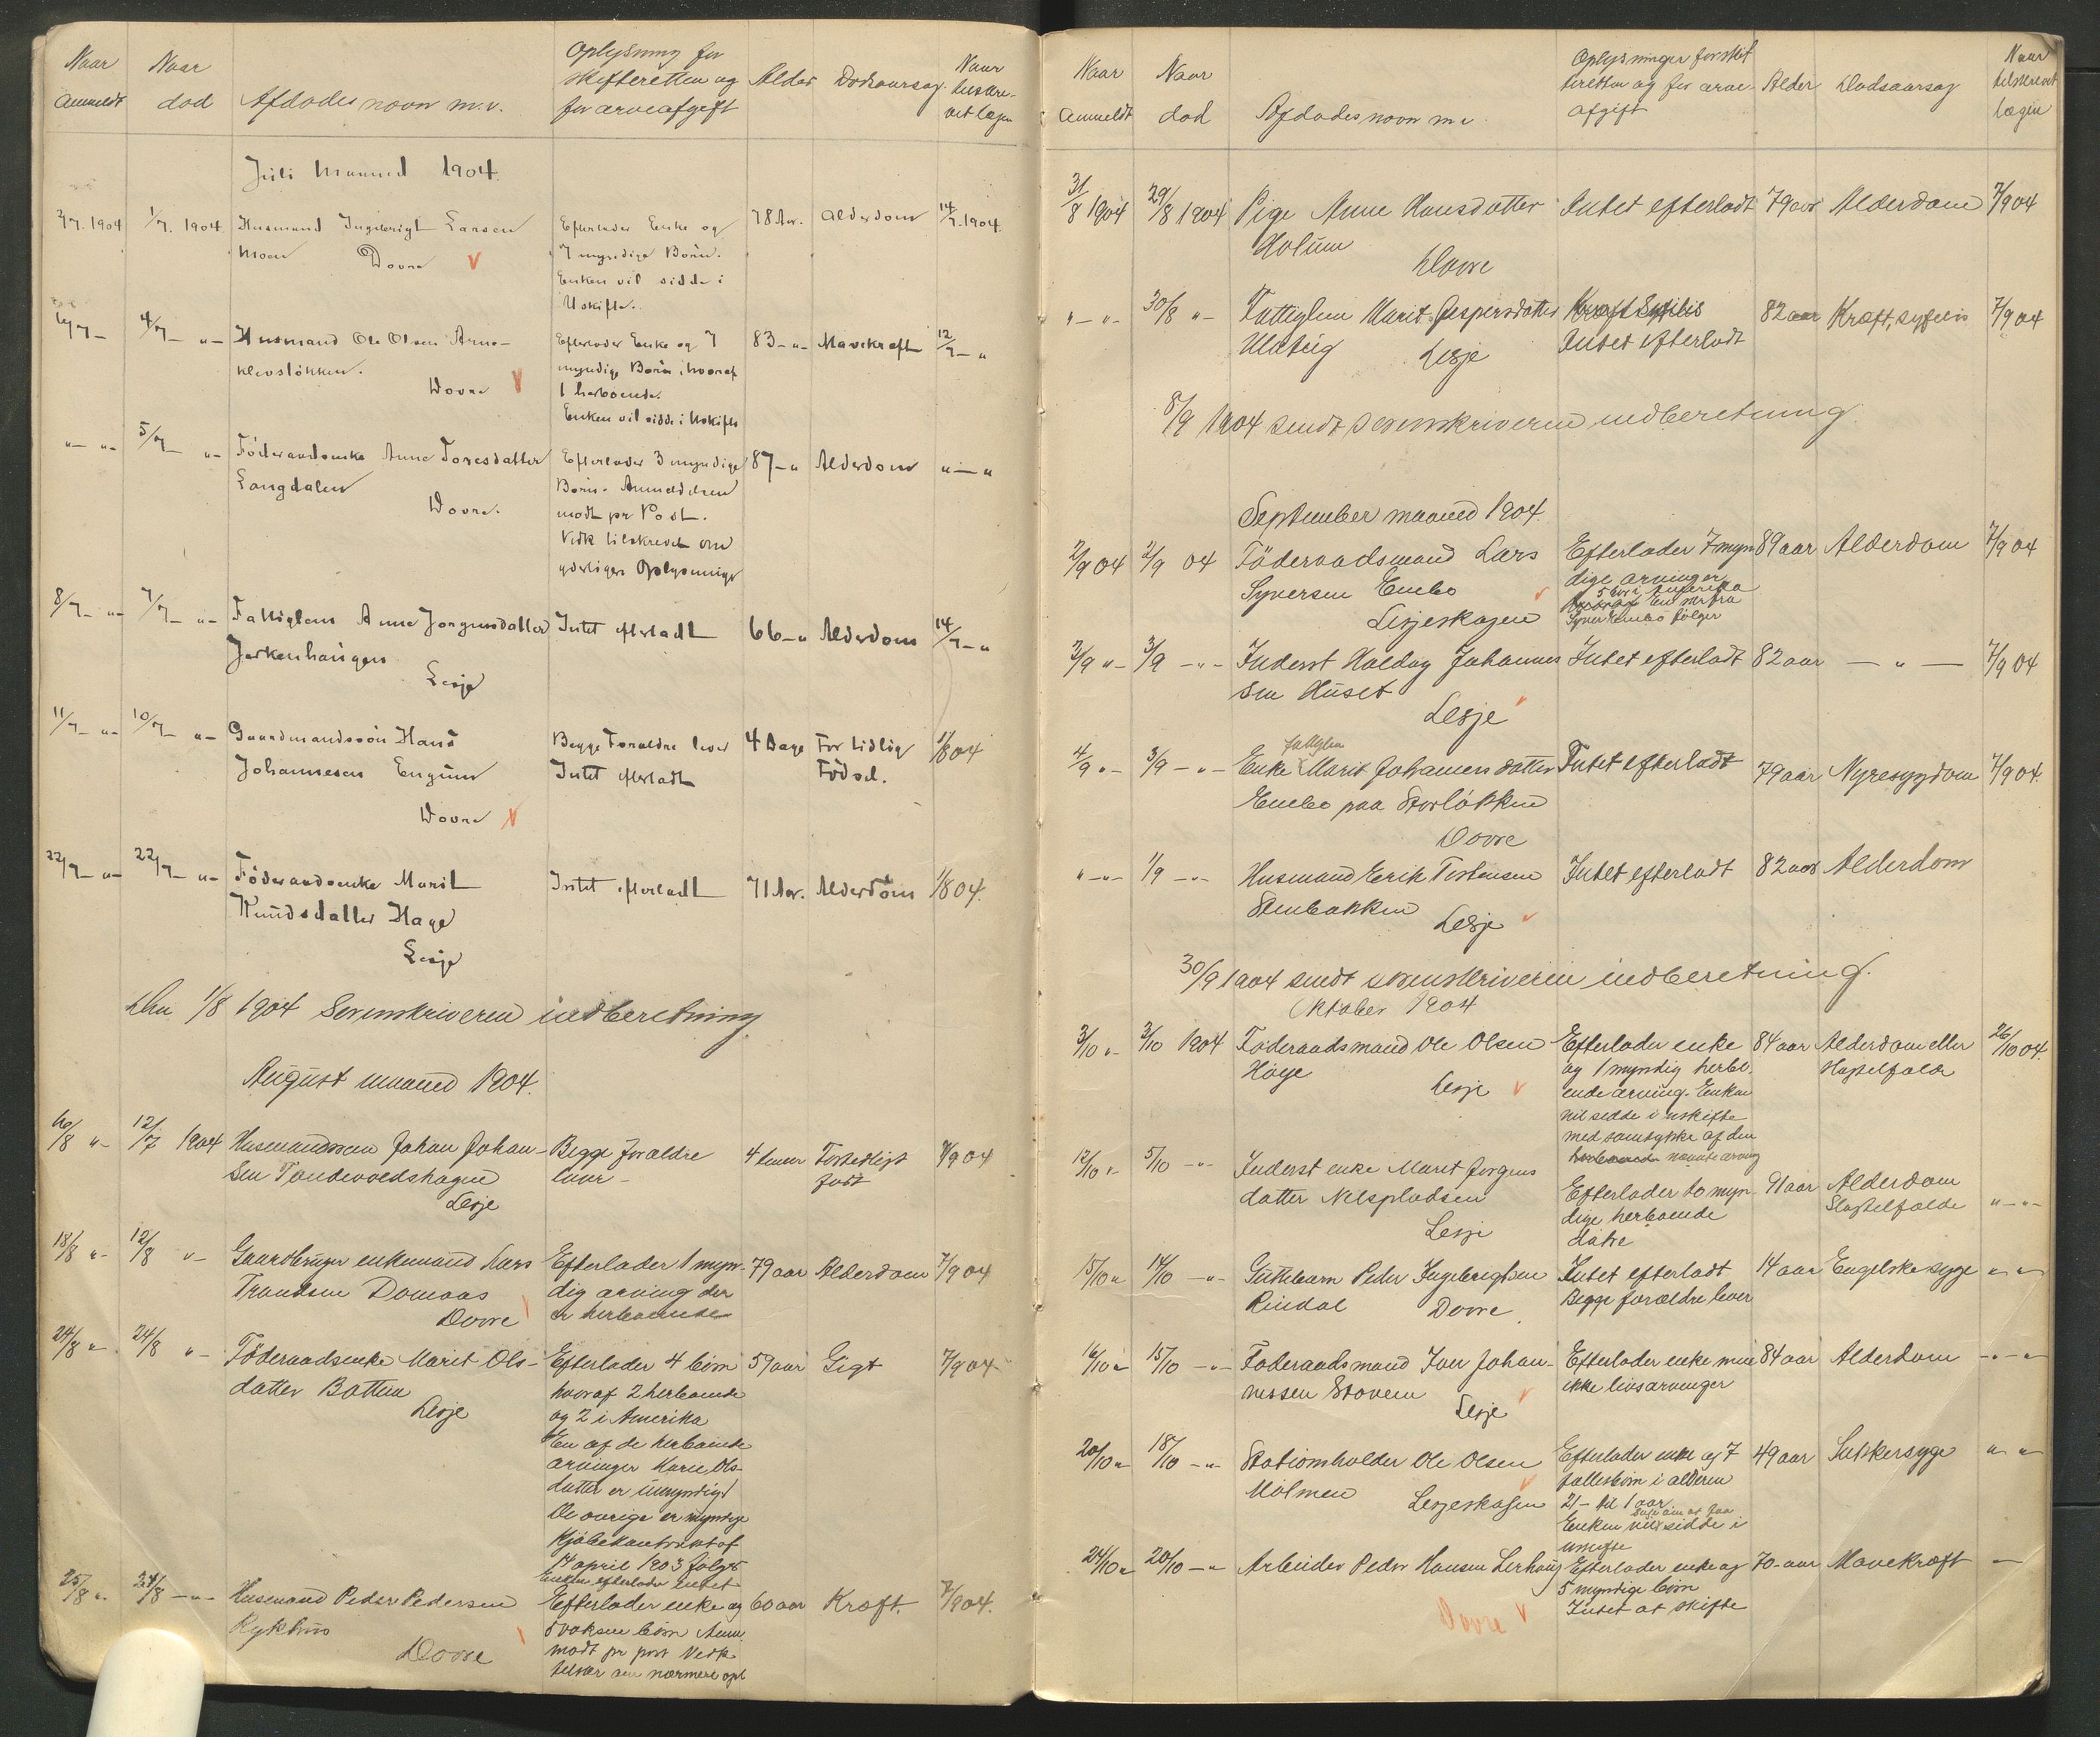 Naar anmeldt
Naar død
Afdødes navn m.v.
Oplysning for
skifteretten og
for arveafgift
Alder
Dødsaarsag
Naar
tilskre-
vet lægen
Juli Maaned 1904.
2/7. 1904 1/7. 1904 Husmand Ingebrigt Larsen Efterlader Enke og 78 Aar. Alderdom 14/7. 1904
Moen Dovre V 7 myndige Børn.
Enken vil sidde i
Uskifte.
6/7 - 4/7 - " - Husmand Ole Olsen Arne- Efterlader Enke og 7 83 - " - Mavekræft 12/7 - "
klevsløkken. myndige Børn, hvoraf
Dovre V 1 herboende.
Enken vil sidde i Uskifte
" - " - 5/7 - " - Föderaadsenke Anne Toresdatter Efterlader 3 myndige 87 - " Alderdom " - "
Langdalen Børn. Anmeldelsen
Dovre. modt pr Post.
Vedk tilskrevet om
yderligere Oplysninger
8/7 - " - 7/7 - " - Fattiglem Anne Jørgensdatter Intet efterladt 66 - " Alderdom 14/7 - "
Jorkenhaugen
Lesje
11/7 - " - 10/7 - " - Gaardmandssön Hans Begge Forældre lever 4 Dage For tidlig 1/8 04
Johannesen Engum Intet efterladt Födsel.
Dovre V
22/7 - " - 22/7 - " - Föderaadsenke Marit Intet efterladt 71 Aar. Alderdom 1/8 04.
Knudsdatter Hage
Lesje
Den 1/8 1904 Sorenskriveren indberetning
August maaned 1904.
16/8 " - 12/7 1904 Husmandssøn Johan Johan- Begge forældre 4 timer Fortidligt 7/9 04
sen Tandevoldshagen lever - født
Lesje
18/8 " - 12/8 " - Gaardbruger enkemand Lars Efterlader 1 myn- 79 aar Alderdom 7/9 04
Trondsen Domaas dig arving der
Dovre er herboende
24/8 " - 24/8 " - Föderaadsenke Marit Ols- Efterlader 4 børn 59 aar Gigt 7/9 04
datter Botten hvoraf 2 herboende
Lesje og 2 i Amerika
En af de herboende
arvinger Karie Ols-
datter er umyndig
De øvrige er myndige
Kjøbekontrakt af
14 april 1903 følger
Enken efterlader intet
25/8 " - 24/8 - " - Husmand Peder Pedersen Efterlader enke og 60 aar Kræft. 7/9 04.
Rykhus 5 voksne børn Anm.
Dovre modt pr post Vedk
tilskr om nærmere opl
Naar anmeldt
Naar død
Afdødes navn m v.
Oplysninger for skif
teretten og for arve-
afgift
Alder
Dødsaarsag
Naar
tilskrevet
lægen
31/8 1904 29/8 1904 Pige Anne Hansdatter Intet efterladt 79 aar Alderdom 7/9 04
Holum
Dovre
" - " - 30/8 " - Fattiglem Marit Jespersdatter Kræft Syfilis 82 aar Kræft, syfilis 7/9 04
Ulateig Lesje Intet efterladt
8/9 1904 sendt sorenskriveren indberetning.
September maaned 1904.
2/9 04 2/9 04 Föderaadsmand Lars Efterlader 7 myn 89 aar Alderdom 7/9 04
Syversen Enebo dige arvinger
Lesjeskogen V 5 bor i Amerika
hvoraf En skr fra
Syver Enebo følger
3/9 " - 3/9 - " - Inderst Haldog Johannes Intet efterladt 82 aar - " - 7/9 04
sen Huset
Lesje V
fattiglem
4/9 " - 3/9 - " - Enke Marit Johannesdatter Intet efterladt 79 aar Nyresygdom 7/9 04.
Enebo paa Storløkken
Dovre
" - " - 1/9 - " - Husmand Erik Torstensen Intet efterladt 82 aar Alderdom
Stenbakken
Lesje V
30/9 1904 sendt sorenskriveren indberetning.
Oktober 1904
3/10 " - 3/10 1904 Föderaadsmand Ole Olsen Efterlader enke 84 aar Alderdom eller 26/10 04.
Høye og 1 myndig herbo- Slagtilfælde
Lesje V ende arving. Enken
vil sidde i uskifte
med samtykke af den
herboende nævnte arving
12/10 " 5/10 - " - Inderst enke Marit Jørgens Efterlader to myn- 91 aar Alderdom
datter Nilspladsen dige herboende Slagtilfælde " - " -
Lesje døtre
15/10 " 14/10 - " - Guttebarn Peder Ingebrigtsen Intet efterladt 14 aar Engelsk syge " - "
Rindal Dovre. Begge forældre lever
16/10 " 15/10 - " - Føderaadsmand Iver Johan- Efterlader enke men 84 aar Alderdom - " - "
nessen Stoven ikke livsarvinger
Lesje V
20/10 " 18/10 - " - Stationsholder Ole Olsen Efterlader enke og 7 49 aar Sukkersyge " "
Mølmen fællesbørn i alderen
Lesjeskogen V 21 - til 1 aar.
søge om at faa
Enken vil sidde i
uskifte
24/10 " 20/10 - " Arbeider Peder Hansen Lerhaug Efterlader enke og 70 aar Mavekræft -
5 myndige børn
Dovre V Intet at skifte